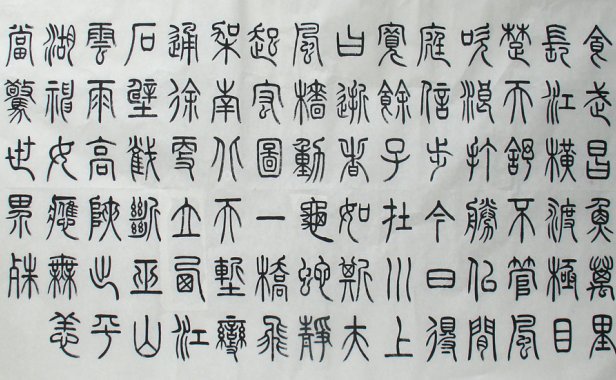 食武昌魚萬里
長江橫渡極目
楚天舒不管風
吹浪打勝佀閒
庭信步今日得
寬餘子在川上
曰逝者如斯夫
風檣動龜蛇靜
起宏圖一橋飛
架南北天塹變
通途更立西江
石壁截斷巫山
雲雨高峽出平
湖神女應無恙
當驚世界殊